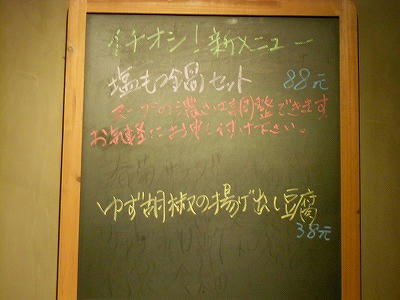 イチオシ！新メニュー
塩もつ鍋セット 88元
スープの濃さは調整できます。
お気軽にお申し付け下さい。
ゆず胡椒の揚げ出し豆腐
38元